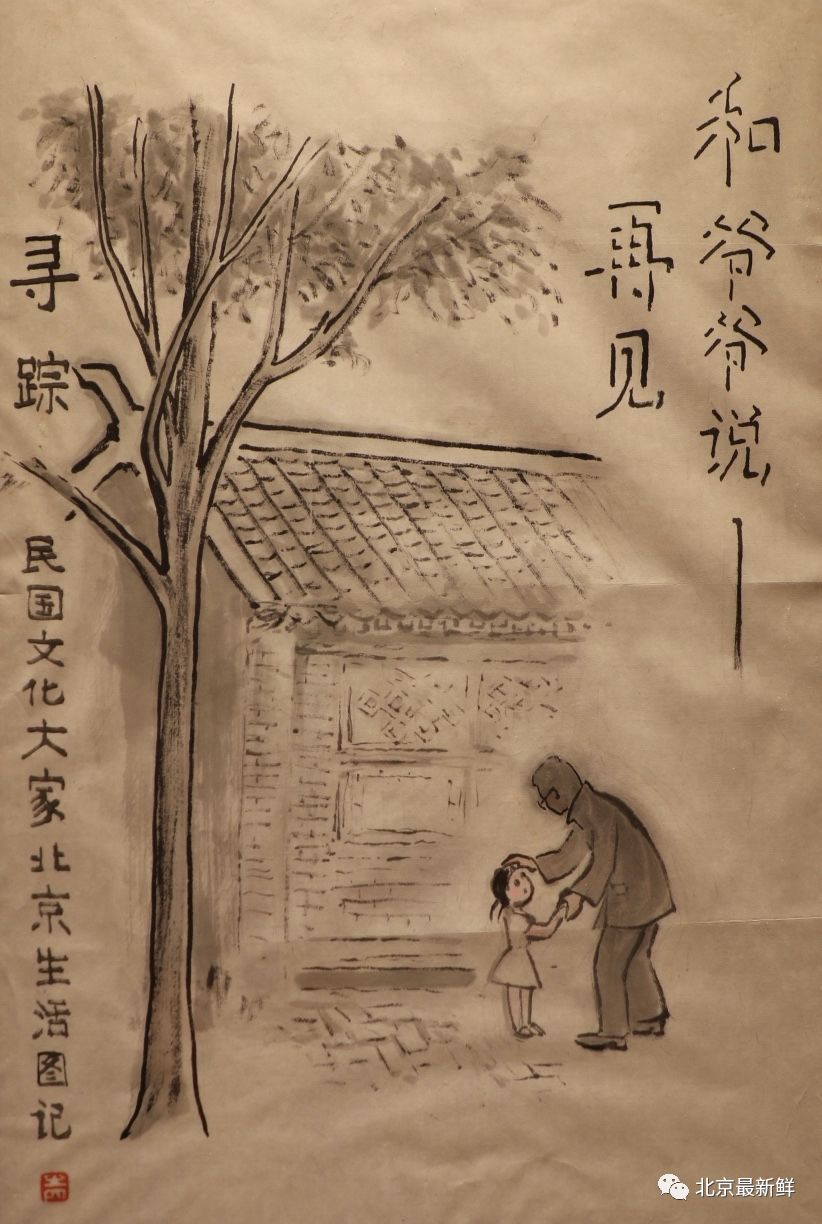 和爷爷说——
再见
寻踪
民国文化大家北京生活图记
北京最新鲜